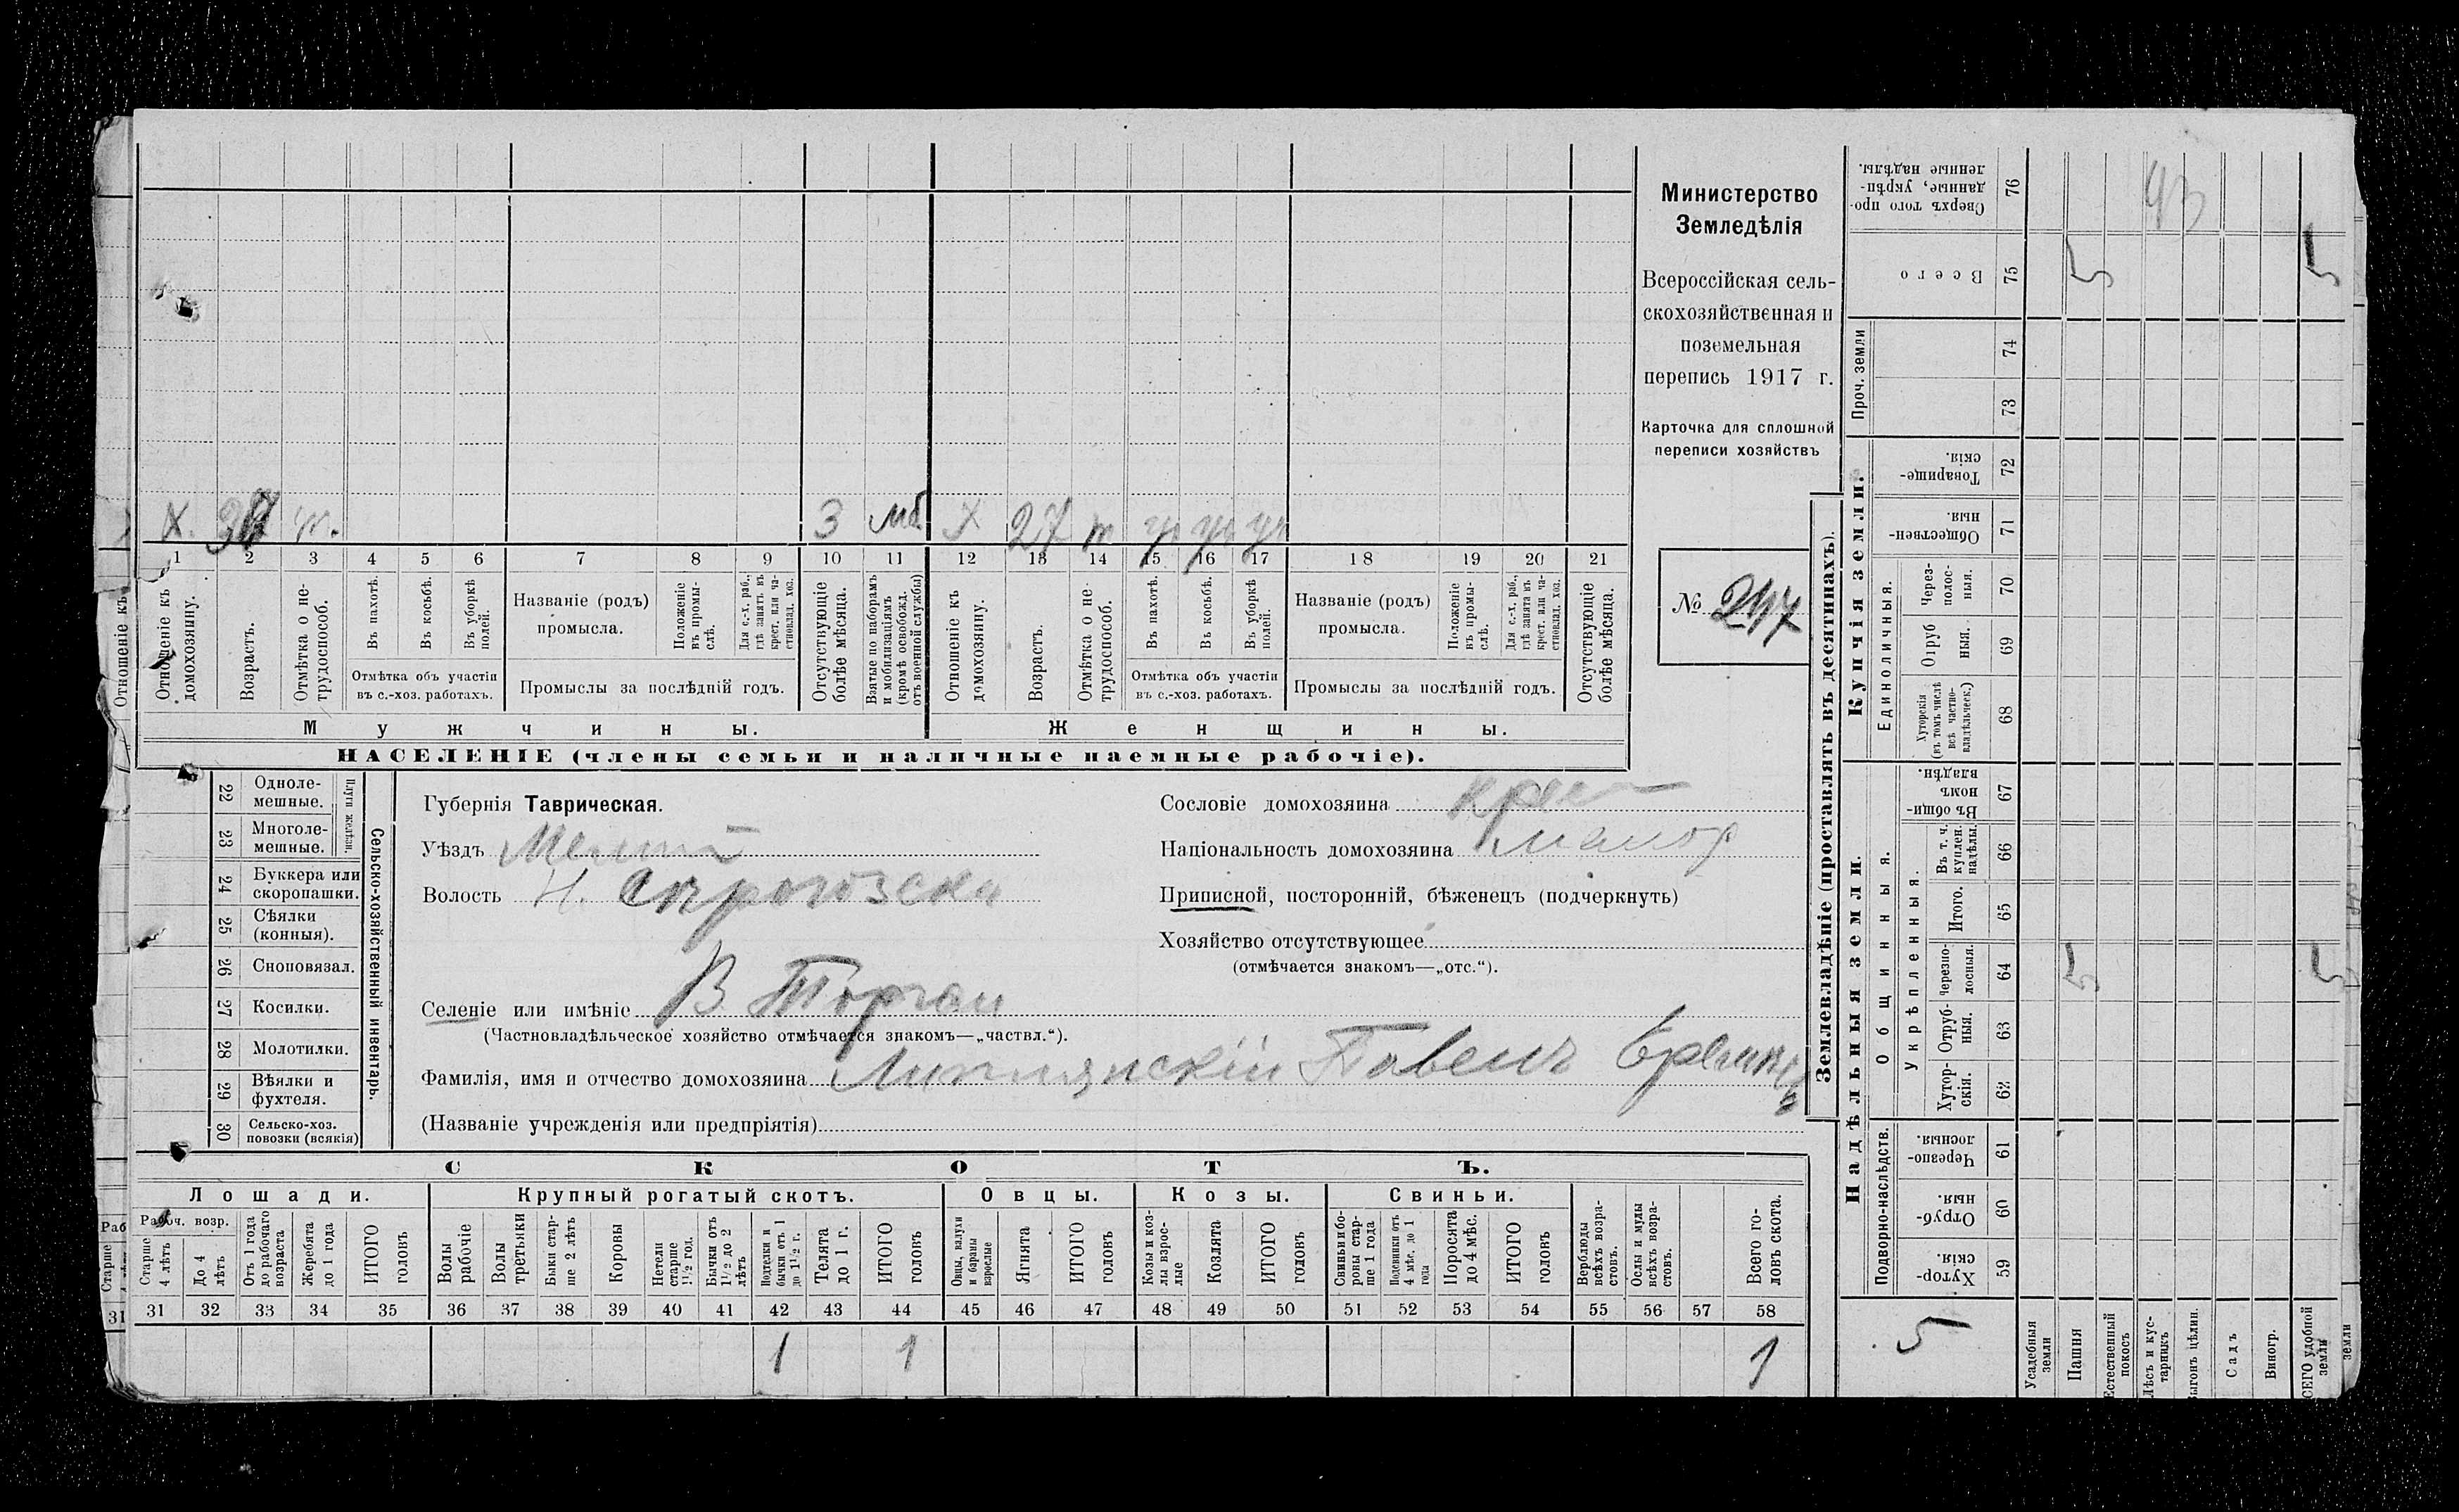 Министерство
Земледѣлія
Всероссійская сель-
скохозяйственная и
поземельная
перепись 1917 г.
Карточка для сплошной
переписи хозяйствъ
№ 297
Х. т. 3 мб Х 27 т
1 2 3 4 5 6 7 8 9 10 11 12 13 14 15 16 17 18 19 20 21
Отношеніе къ домохозяину.
Возрастъ.
Отмѣтка о не-трудоспособ.
Въ пахотѣ.
Въ косьбѣ.
Въ уборкѣ полей.
Отмѣтка объ участіи
въ с.-хоз. работахъ.
Названіе (родъ)
промысла.
Положеніе въ промы-слѣ.
Для с.-х. раб., гдѣ занятъ въ крест. или ча-стновлад. хоз.
Промыслы за послѣдній годъ.
Отсутствующіе болѣе мѣсяца.
Взятые по наборамъ и мобилизаціямъ (кромѣ освобожд. отъ военной службы)
Отношеніе къ домохозяину.
Возрастъ.
Отмѣтка о не-трудоспособ.
Въ пахотѣ.
Въ косьбѣ.
Въ уборкѣ полей.
Отмѣтка объ участіи
въ с.-хоз. работахъ.
Названіе (родъ)
промысла.
Положеніе въ промы-слѣ.
Для с.-х. раб., гдѣ занята въ крест. или ча-стновлад. хоз.
Промыслы за послѣдній годъ.
Отсутствующіе болѣе мѣсяца.
Мужчины. Женщины.
НАСЕЛЕНІЕ (члены семьи и наличные наемные рабочіе).
22 Одноле-мешные.
23 Многоле-мешные.
Плуги желѣзн.
24 Буккера или скоропашки.
25 Сѣялки (конныя).
26 Сноповязал.
27 Косилки.
28 Молотилки.
29 Вѣялки и фухтеля.
30 Сельско-хоз. повозки (всякія)
Сельско-хозяйственный инвентарь.
Губернія Таврическая.
Уѣздъ Мелит
Волость Н. Сѣрогозска
Селеніе или имѣніе В. Торгаи
(Частновладѣльческое хозяйство отмѣчается знакомъ—„частвл.“).
Фамилія, имя и отчество домохозяина Липлянскій Павелъ
(Названіе учрежденія или предпріятія)
Сословіе домохозяина крест
Національность домохозяина малор
Приписной, посторонній, бѣженецъ (подчеркнуть)
Хозяйство отсутствующее
(отмѣчается знакомъ—„отс.“).
СКОТЪ.
Лошади. Крупный рогатый скотъ. Овцы. Козы. Свиньи.
Рабоч. возр.
Старше 4 лѣтъ
До 4 лѣтъ
Отъ 1 года до рабочаго возраста
Жеребята до 1 года
ИТОГО головъ
Волы рабочіе
Волы третьяки
Быки стар-ше 2 лѣтъ
Коровы
Нетели старше 1½ год.
Бычки отъ 1½ до 2 лѣтъ
Подтелки и бычки отъ 1 до 1½ г.
Телята до 1 г.
ИТОГО головъ
Овцы, валухи и бараны взрослые
Ягнята
ИТОГО головъ
Козы и коз-лы взрос-лые
Козлята
ИТОГО головъ
Свиньи и бо-ровы стар-ше 1 года
Подсвинки отъ 4 мѣс. до 1 года
Поросята до 4 мѣс.
ИТОГО головъ
Верблюды всѣхъ возра-стовъ.
Ослы и мулы всѣхъ возра-стовъ.
Всего го-ловъ скота.
31 32 33 34 35 36 37 38 39 40 41 42 43 44 45 46 47 48 49 50 51 52 53 54 55 56 57 58
1 1 1
Землевладѣніе (проставлять въ десятинахъ).
Купчія земли.
Надѣльныя земли.
Сверхъ того про-данные, укрѣп-ленные надѣлы. 76
Всего 75 5 5
Проч. земли 74 73
Товарище-скія. 72
Обществен-ныя. 71
Единоличныя.
Через-полос-ныя. 70
Отруб ныя. 69
Хуторскія (въ томъ числѣ всѣ частно-владѣльчес.) 68
Общинныя.
Въ общи-номъ владѣн. 67
Укрѣпленныя.
Въ т. ч. куплен. надѣлы. 66
Итого. 65
Черезпо-лосныя. 64 5 5
Отруб-ныя. 63
Хутор-скія. 62
Подворно-наслѣдств.
Черезпо-лосныя. 61
Отруб-ныя. 60
Хутор-скія. 59
5
Усадебныя земли
Пашня
Естественный покосъ
Лѣсъ и кус-тарникъ
Выгонъ цѣлин.
Садъ
Виногр.
СЕГО удобной земли
земли
Отношеніе къ
Раб
Старше
31